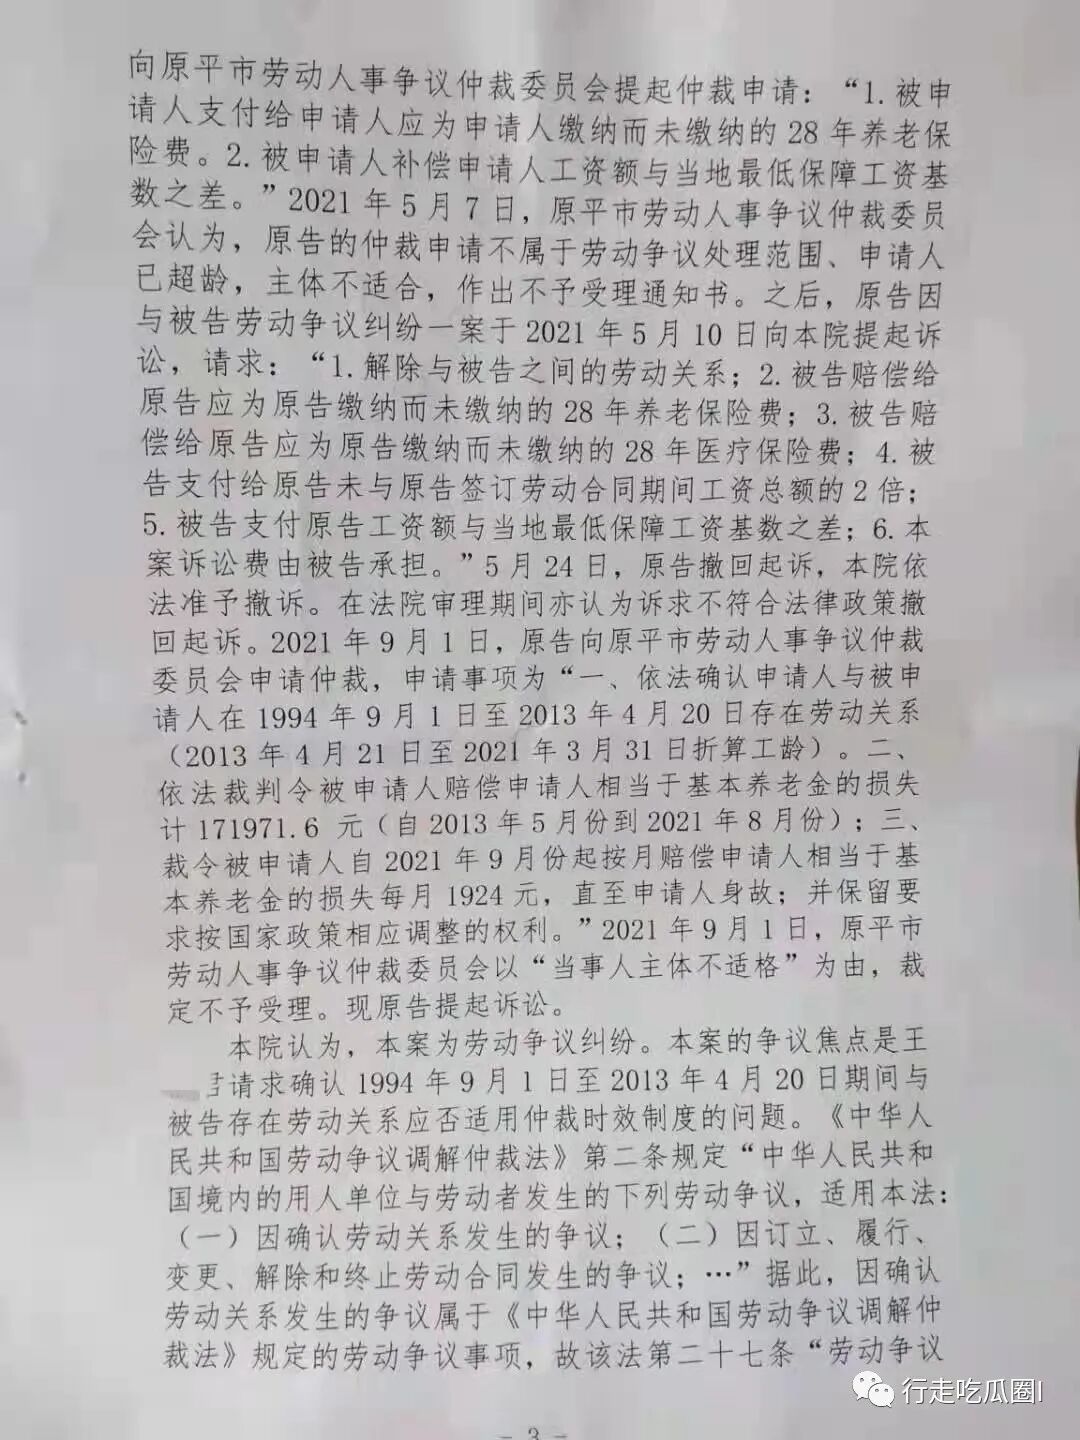 向原平市劳动人事争议仲裁委员会提起仲裁申请：“1.被申
请人支付给申请人应为申请人缴纳而未缴纳的28年养老保
险费。2.被申请人补偿申请人工资额与当地最低保障工资基
数之差。”2021年5月7日，原平市劳动人事争议仲裁委员
会认为，原告的仲裁申请不属于劳动争议处理范围、申请人
已超龄，主体不适合，作出不予受理通知书。之后，原告因
与被告劳动争议纠纷一案于2021年5月10日向本院提起诉
讼，请求：“1.解除与被告之间的劳动关系；2.被告赔偿给
原告应为原告缴纳而未缴纳的28年养老保险费；3.被告赔
偿给原告应为原告缴纳而未缴纳的28年医疗保险费；4.被
告支付给原告未与原告签订劳动合同期间工资总额的2倍；
5.被告支付原告工资额与当地最低保障工资基数之差；6.本
案诉讼费由被告承担。”5月24日，原告撤回起诉，本院依
法准予撤诉。在法院审理期间亦认为诉求不符合法律政策撤
回起诉。2021年9月1日，原告向原平市劳动人事争议仲裁
委员会申请仲裁，申请事项为“一、依法确认申请人与被申
请人在1994年9月1日至2013年4月20日存在劳动关系
（2013年4月21日至2021年3月31日折算工龄）。二、
依法裁判令被申请人赔偿申请人相当于基本养老金的损失
计171971.6 元（自2013年5月份到2021年8月份）；三、
裁令被申请人自2021年9月份起按月赔偿申请人相当于基
本养老金的损失每月1924元，直至申请人身故；并保留要
求按国家政策相应调整的权利。”2021年9月1日，原平市
劳动人事争议仲裁委员会以“当事人主体不适格”为由，裁
定不予受理。现原告提起诉讼。
本院认为，本案为劳动争议纠纷。本案的争议焦点是王
请求确认1994年9月1日至2013年4月20日期间与
被告存在劳动关系应否适用仲裁时效制度的问题。《中华人
民共和国劳动争议调解仲裁法》第二条规定“中华人民共和
国境内的用人单位与劳动者发生的下列劳动争议，适用本法：
（一）因确认劳动关系发生的争议；（二）因订立、履行、
变更、解除和终止劳动合同发生的争议；…”据此，因确认
劳动关系发生的争议属于《中华人民共和国劳动争议调解仲
裁法》规定的劳动争议事项，故该法第二十七条“劳动争议
行走吃瓜圈l
- 3 -